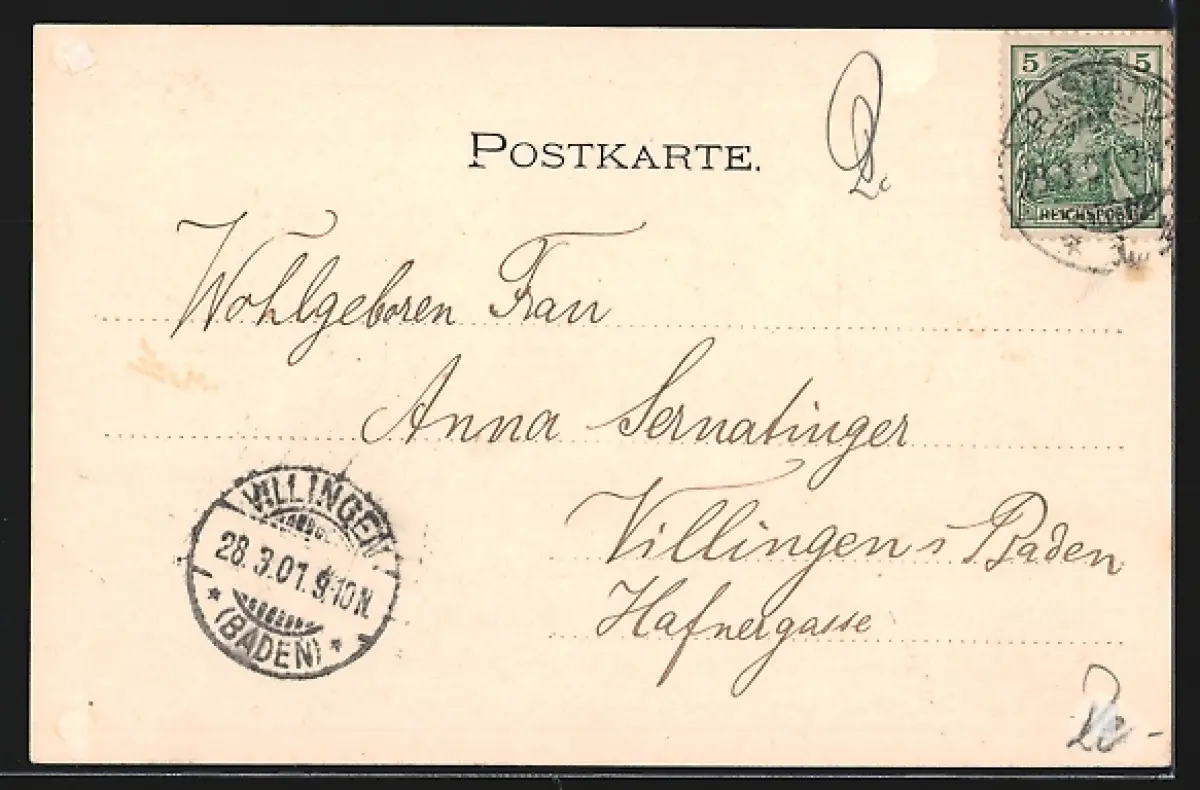 5 5
REICHSPOST
POSTKARTE.
Wohlgeboren Frau
Anna Sernatinger
Villingen i Baden
Hafnergasse
VILLINGEN
28.3.01. 9-10 N.
* (BADEN) *